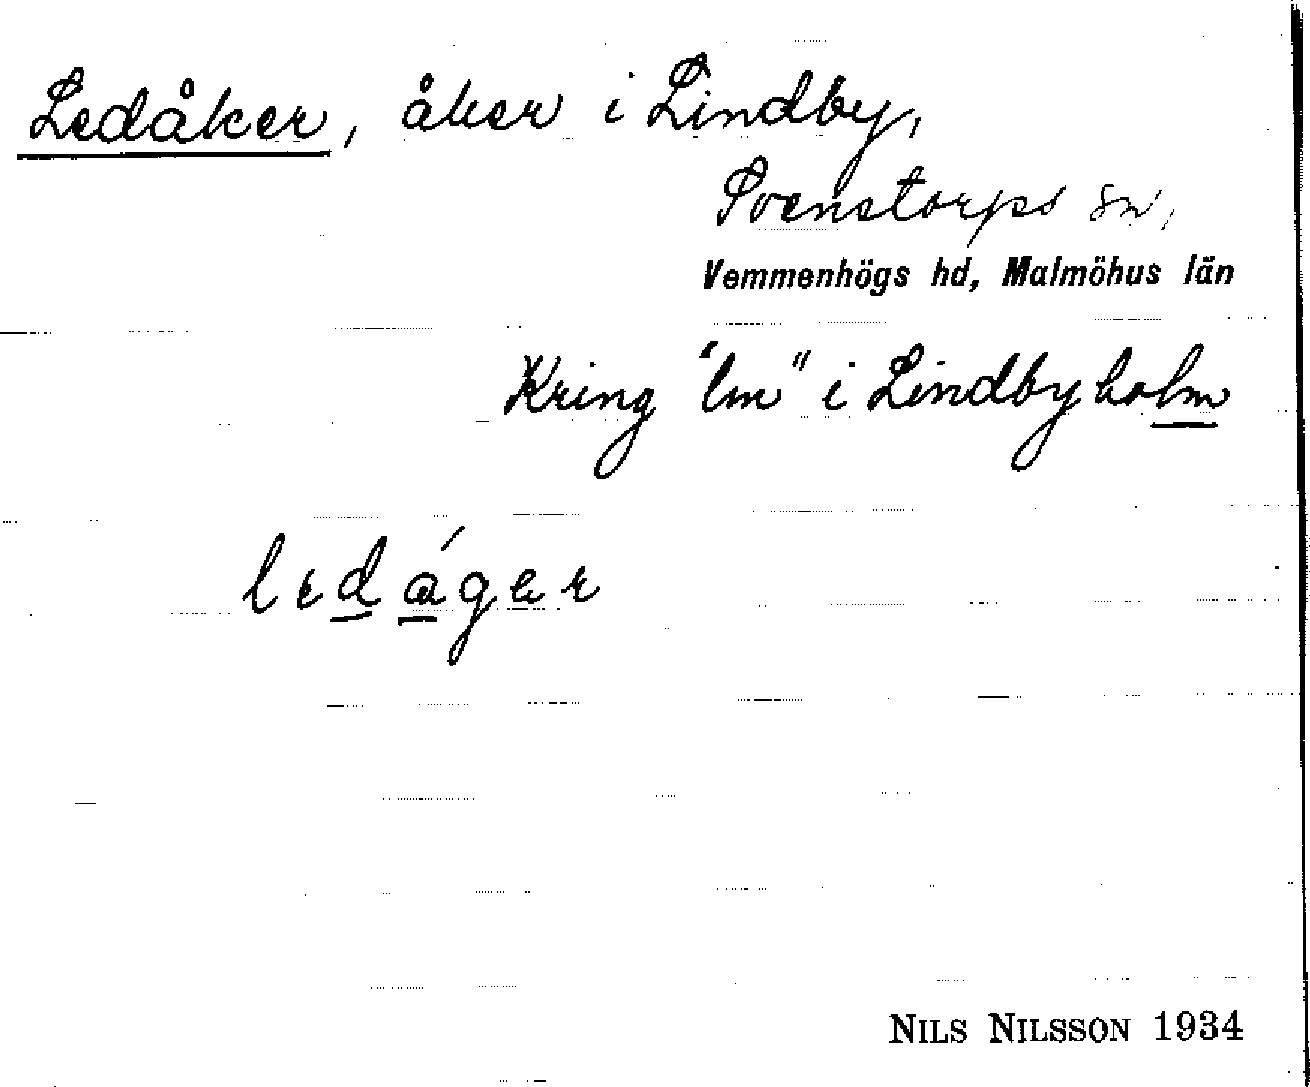 Ledåker, åker i Lindby,
Svenstorps sn,
Vemmenhögs hd, Malmöhus län
Kring "lm" i Lindbyholm
ledáger
NILS NILSSON 1934